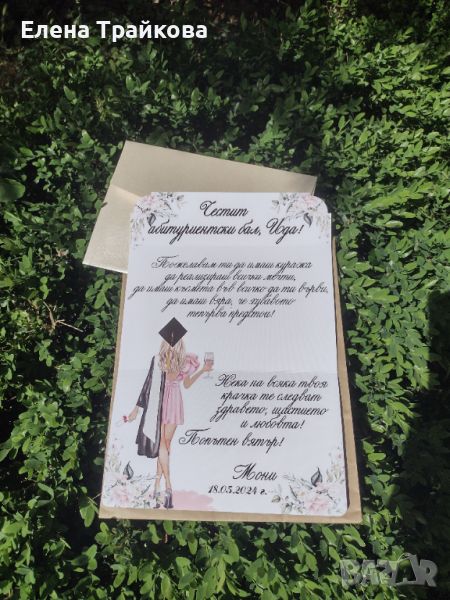 Елена Трайкова
Честит
абитуриентски бал, Ида!
Пожелавам ти да имаш куража
да реализираш всички мечти,
да имаш късмета във всичко да ти върви,
да имаш вяра, че хубавото
тепърва предстои!
Нека на всяка твоя
крачка те следват
здравето, щастието
и любовта!
Попътен вятър!
Мони
18.05.2024 г.
BAZAR